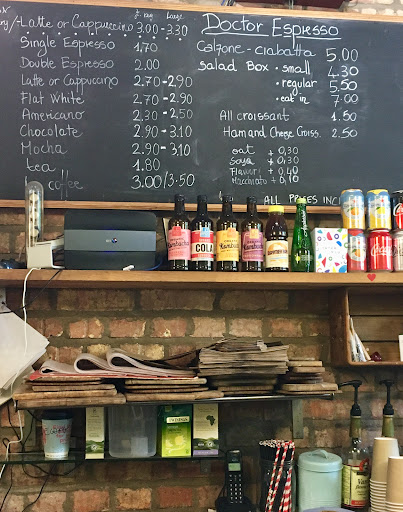 Latte or Cappuccino 3.00 - 3.30
Reg Large
Single Espresso 1.70
Double Espresso 2.00
Latte or Cappucino 2.70 - 2.90
Flat White 2.70 - 2.90
Americano 2.30 - 2.50
Chocolate 2.90 - 3.10
Mocha 2.90 - 3.10
tea 1.80
coffee 3.00/3.50
Doctor Espresso
Calzone - ciabatta 5.00
Salad Box • small 4.30
• regular 5.50
• eat in 7.00
All croissant 1.50
Ham and Cheese Croiss. 2.50
oat + 0,30
Soya + 0,30
Flavour + 0,40
Macchiato + 0,10
ALL PRISES INC
Kombucha
COLA
Kombucha
Kombucha
TWININGS